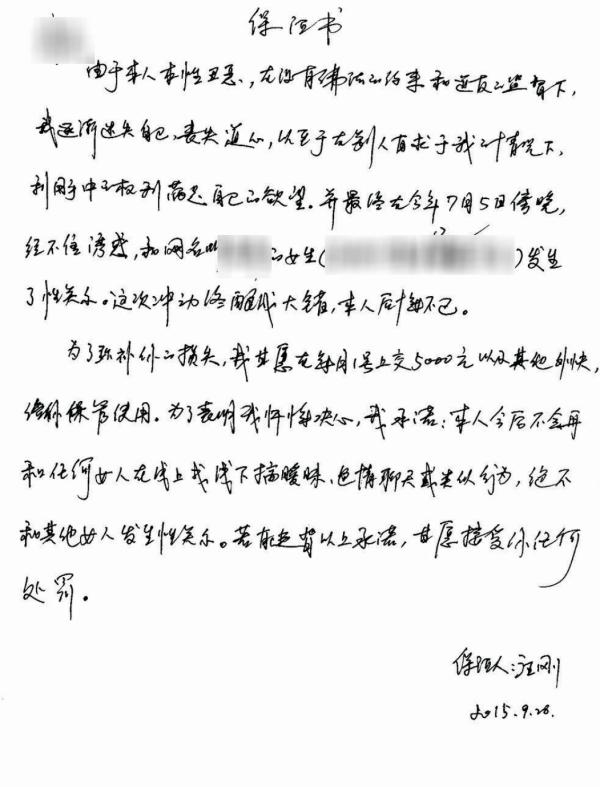 保证书
由于本人本性丑恶,在没有佛法的约束和道友的监督下,
我逐渐迷失自己,丧失道心,以至于在别人有求于我的情况下,
利用手中的权利满足自己的欲望。并最终在今年7月5日傍晚,
经不住诱惑,和网名叫 的女生( )发生
了性关系。这次冲动终酿成大错,本人后悔不已。
为了弥补你的损失,我甘愿在每月1号上交5000元以及其他外快,
给你保管使用。为了表明我怀悔决心,我承诺:本人今后不会再
和任何女人在线上或线下搞暧昧、色情聊天或类似行为,绝不
和其他女人发生性关系。若有违背以上承诺,甘愿接受你任何
处罚。
保证人:汪刚
2015.9.26.